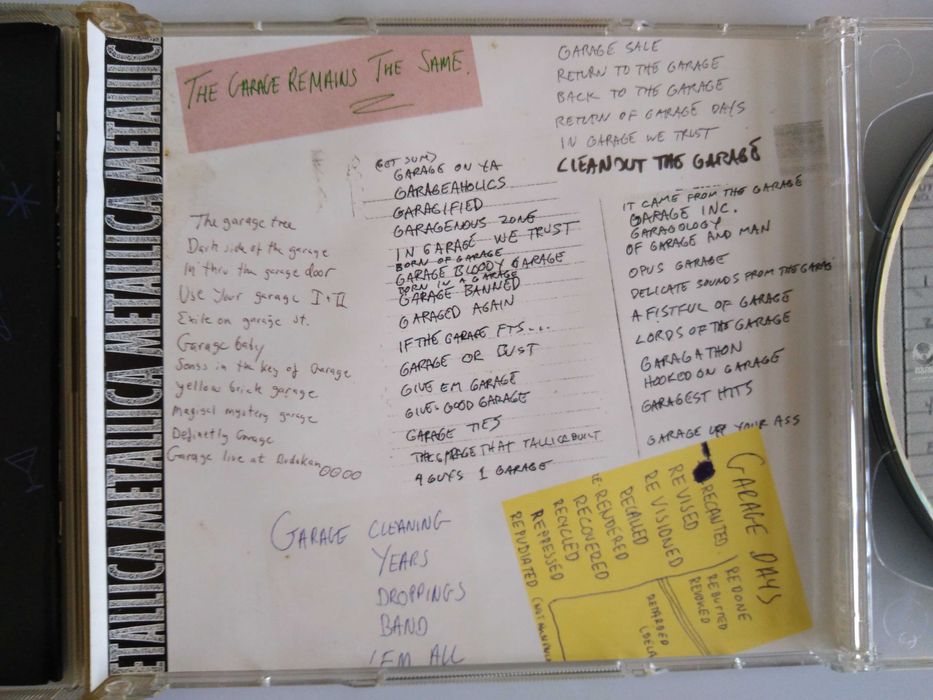 METALLICA METALLICA METALLICA METALLIC
THE GARAGE REMAINS THE SAME.
GARAGE SALE
RETURN TO THE GARAGE
BACK TO THE GARAGE
RETURN OF GARAGE DAYS
IN GARAGE WE TRUST
CLEANOUT THE GARAGE
The garage tree
Dark side of the garage
In thru the garage door
Use Your garage I + II
Exile on garage st.
Garage baby
Songs in the key of Garage
yellow brick garage
Magical mystery garage
Definetly Garage
Garage live at Budokan
(GET SUM)
GARAGE ON YA
GARAGEAHOLICS
GARAGIFIED
GARAGENOUS ZONE
IN GARAGE WE TRUST
BORN OF GARAGE
GARAGE BLOODY GARAGE
BORN IN A GARAGE
GARAGE BANNED
GARAGED AGAIN
IF THE GARAGE FTS...
GARAGE OR BUST
GIVE EM GARAGE
GIVE GOOD GARAGE
GARAGE TIES
THE GARAGE THAT TALLICA BUILT
4 GUYS 1 GARAGE
IT CAME FROM THE GARAGE
GARAGE INC.
GARAGOLOGY
OF GARAGE AND MAN
OPUS GARAGE
DELICATE SOUNDS FROM THE GARAGE
A FISTFUL OF GARAGE
LORDS OF THE GARAGE
GARAGATHON
HOOKED ON GARAGE
GARAGEST HITS
GARAGE UP YOUR ASS
GARAGE CLEANING
YEARS
DROPPINGS
BAND
'EM ALL
GARAGE DAYS
RECANTED
REVISED
REVISIONED
RECALLED
RE-RENDERED
RECOVERED
RECYCLED
REPRESSED
REPUDIATED
REDONE
REBUTTED
REVOKED
RETARDED